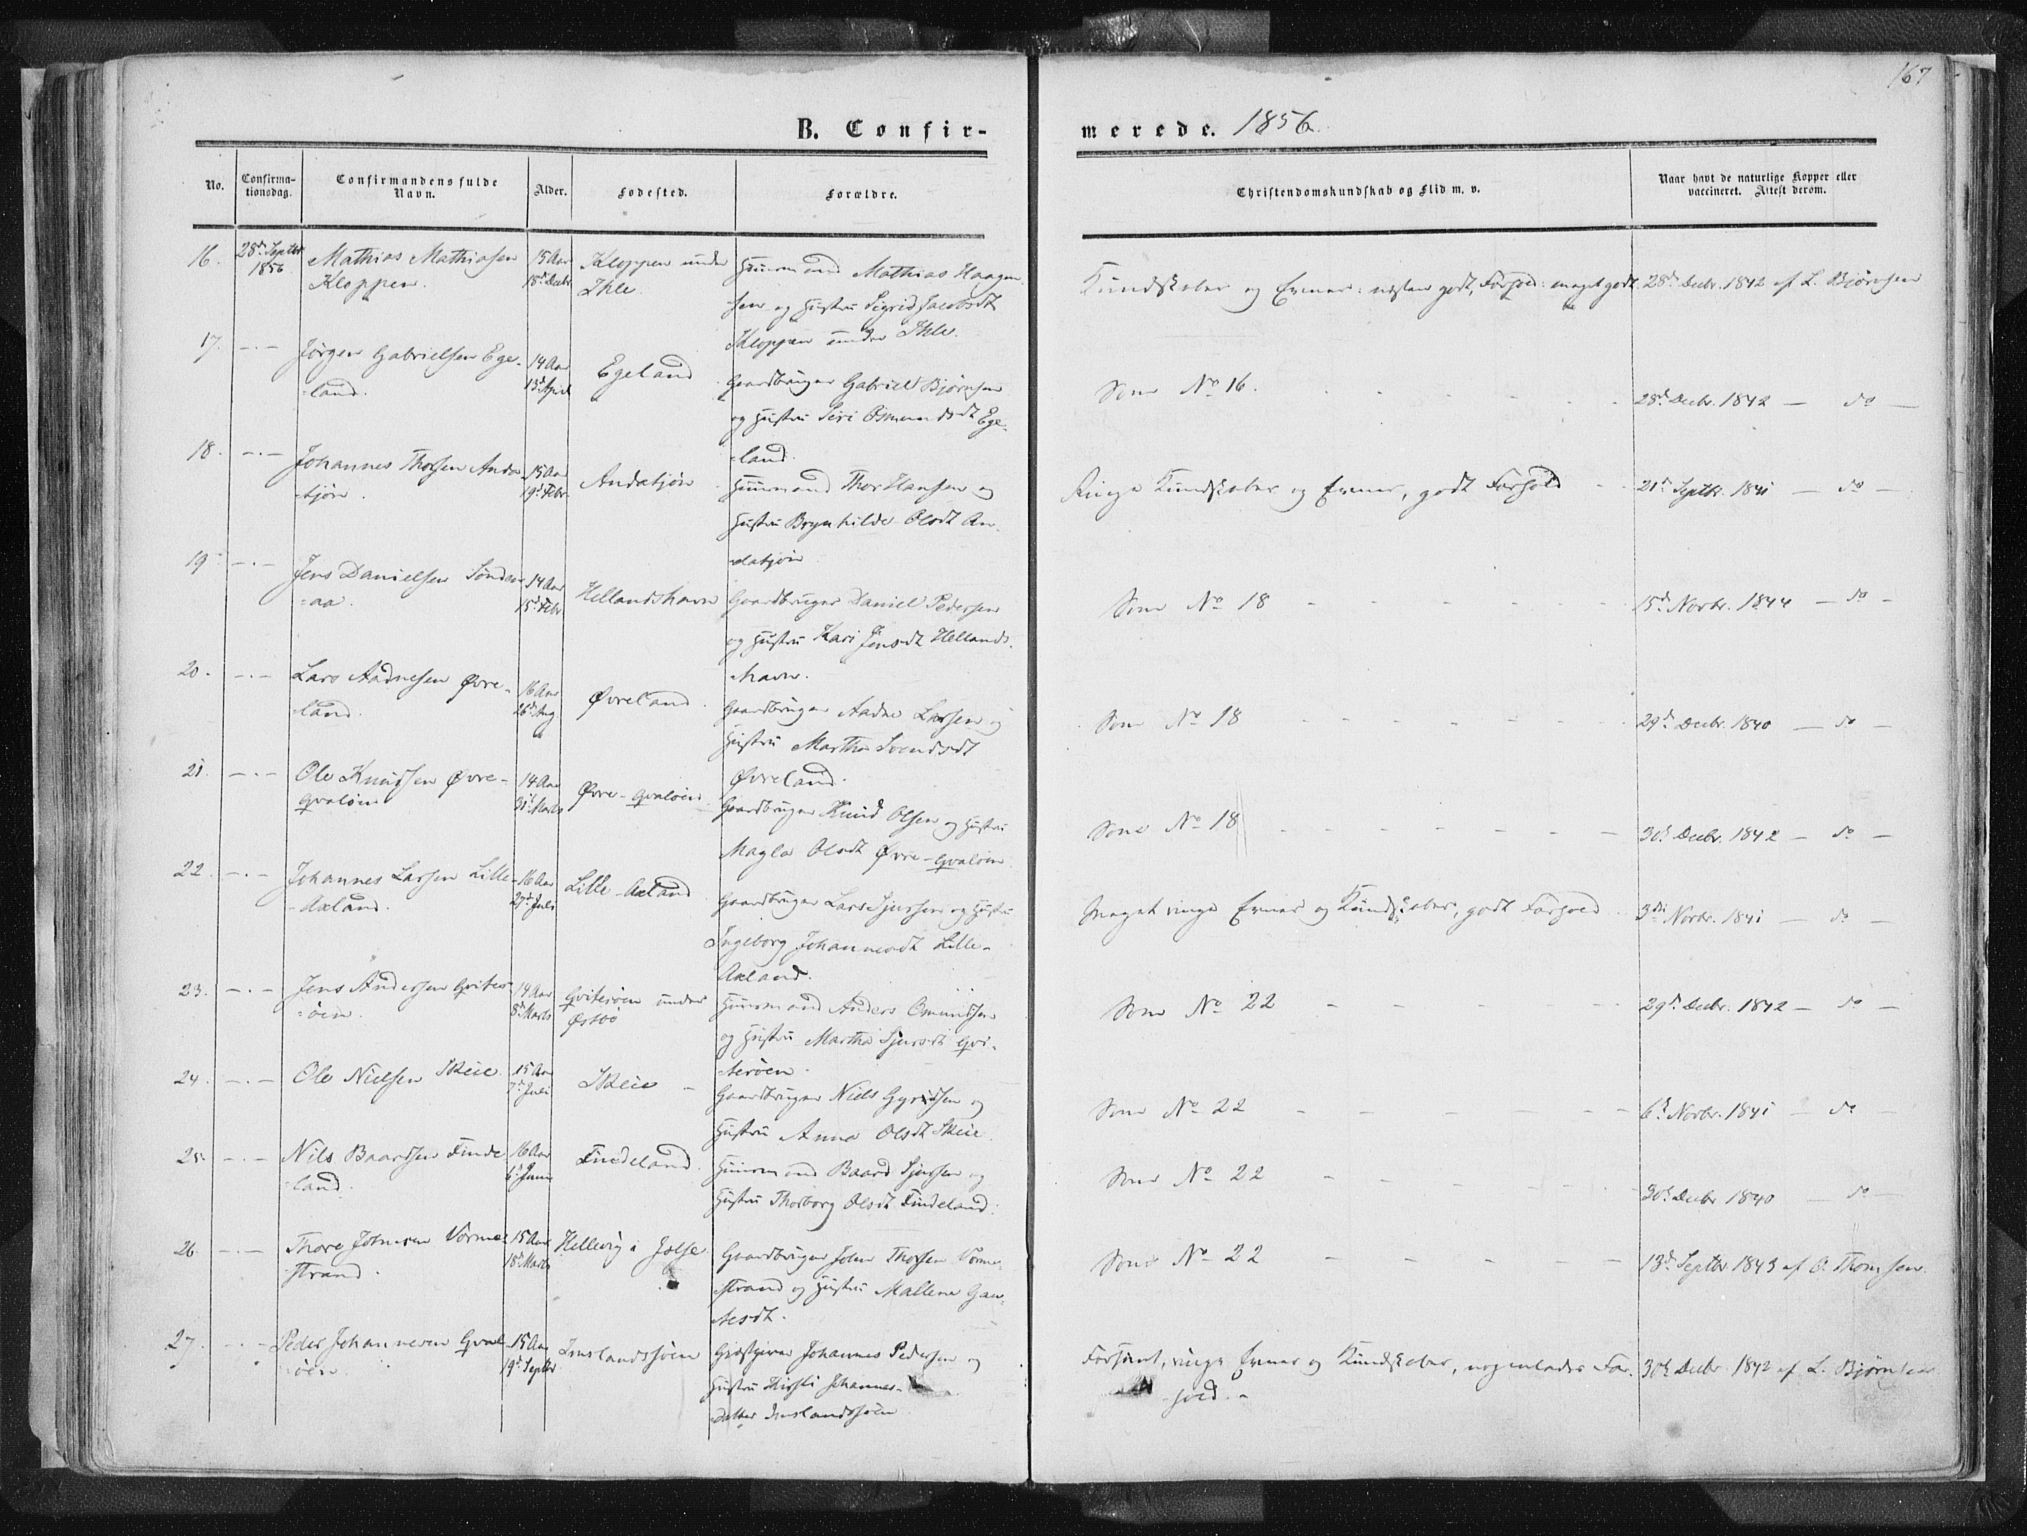 167
B. Confirmerede. 1856.
No.
Confirmationsdag.
Confirmandens fulde Navn.
Alder.
Fødested.
Forældre.
Christendomskundskab og Flid m. v.
Naar havt de naturlige Kopper eller vaccineret. Attest derom.
16. 28d Septbr 1856 Mathias Mathiasen Kloppen. 15 Aar 18d Decbr. Kloppen under Ihle. Huusmand Mathias Haagensen og Hustru Sigrid Jacobsdt Kloppen under Ihle. Kundskaber og Evner: næsten godt, Forhold: meget godt. 28d Decbr. 1842 af L. Bjørnsen
17. — . — Jørgen Gabrielsen Egeland. 14 Aar 13d April Egeland Gaardbruger Gabriel Bjørnsen og Hustru Siri Osmundsdt Egeland. Som No 16. 28d Decbr. 1842 — do —
18. — . — Johannes Thorsen Andatjøn. 15 Aar 19d Febr. Andatjøn Huusmand Thor Hansen og Hustru Brynhilde Olsdt Andatjøn Ringe Kundskaber og Evner, godt Forhold 21d Septbr. 1841 — do —
19. — . — Jens Danielsen Søndenaa. 14 Aar 15d Febr. Hellandshavn Gaardbruger Daniel Pedersen og Hustru Kari Jensdt Hellandshavn. Som No 18 15d Novbr. 1844 — do —
20. — . — Lars Aadnesen Øvreland. 16 Aar 26d Aug. Øvreland Gaardbruger Aadne Larsen og Hustru Martha Svendsdt Øvreland. Som No 18 29d Decbr. 1840 — do —
21. — . — Ole Knudsen Øvre-Qvaløen 14 Aar 31d Marts Øvre-Qvaløen. Gaardbruger Knud Olsen og Hustru Magla Olsdt Øvre-Qvaløen. Som No 18 30d Decbr. 1842 — do —
22. — . — Johannes Larsen Lille-Axland. 16 Aar 27d Juli Lille-Axland Gaardbruger Lars Sjursen og Hustru Ingeborg Johannesdt Lille-Axland. Meget ringe Evner og Kundskaber, godt Forhold 3die Novbr. 1841 — do —
23. — . — Jens Andersen Qviterøen. 14 Aar 8d Marts Qviterøen under Østbø Huusmand Anders Omundsen og Hustru Martha Sjursdt Qviterøen. Som No 22 29d Decbr. 1842 — do —
24. — . — Ole Nielsen Skeie. 15 Aar 7d Juli Skeie Gaardbruger Niels Gyridsen og Hustru Anna Olsdt Skeie. Som No 22 6d Novbr. 1841 — do —
25. — . — Nils Baardsen Findeland. 16 Aar 6d Juni Findeland. Huusmand Baard Sjursen og Hustru Thorborg Olsdt Findeland. Som No 22 30d Decbr 1840 — do —
26. — — Thore Johnsen Vormestrand. 15 Aar 18d Marts Hellevig i Jelse Gaardbruger John Thorsen Vormestrand og Hustru Mallene Gautesdt. Som No 22 13d Septbr 1843 af O. Thomsen.
27. — . — Peder Johannesen Qvaløen. 15 Aar 19d Septbr Imslandssjøen Gjæstgiver Johannes Pedersen og Hustru Johannesdatter Imslandssjøen. Forsømt, ringe Evner og Kundskaber, nogenlunde Forhold. — 30d Decbr 1842 af L. Bjørnsen